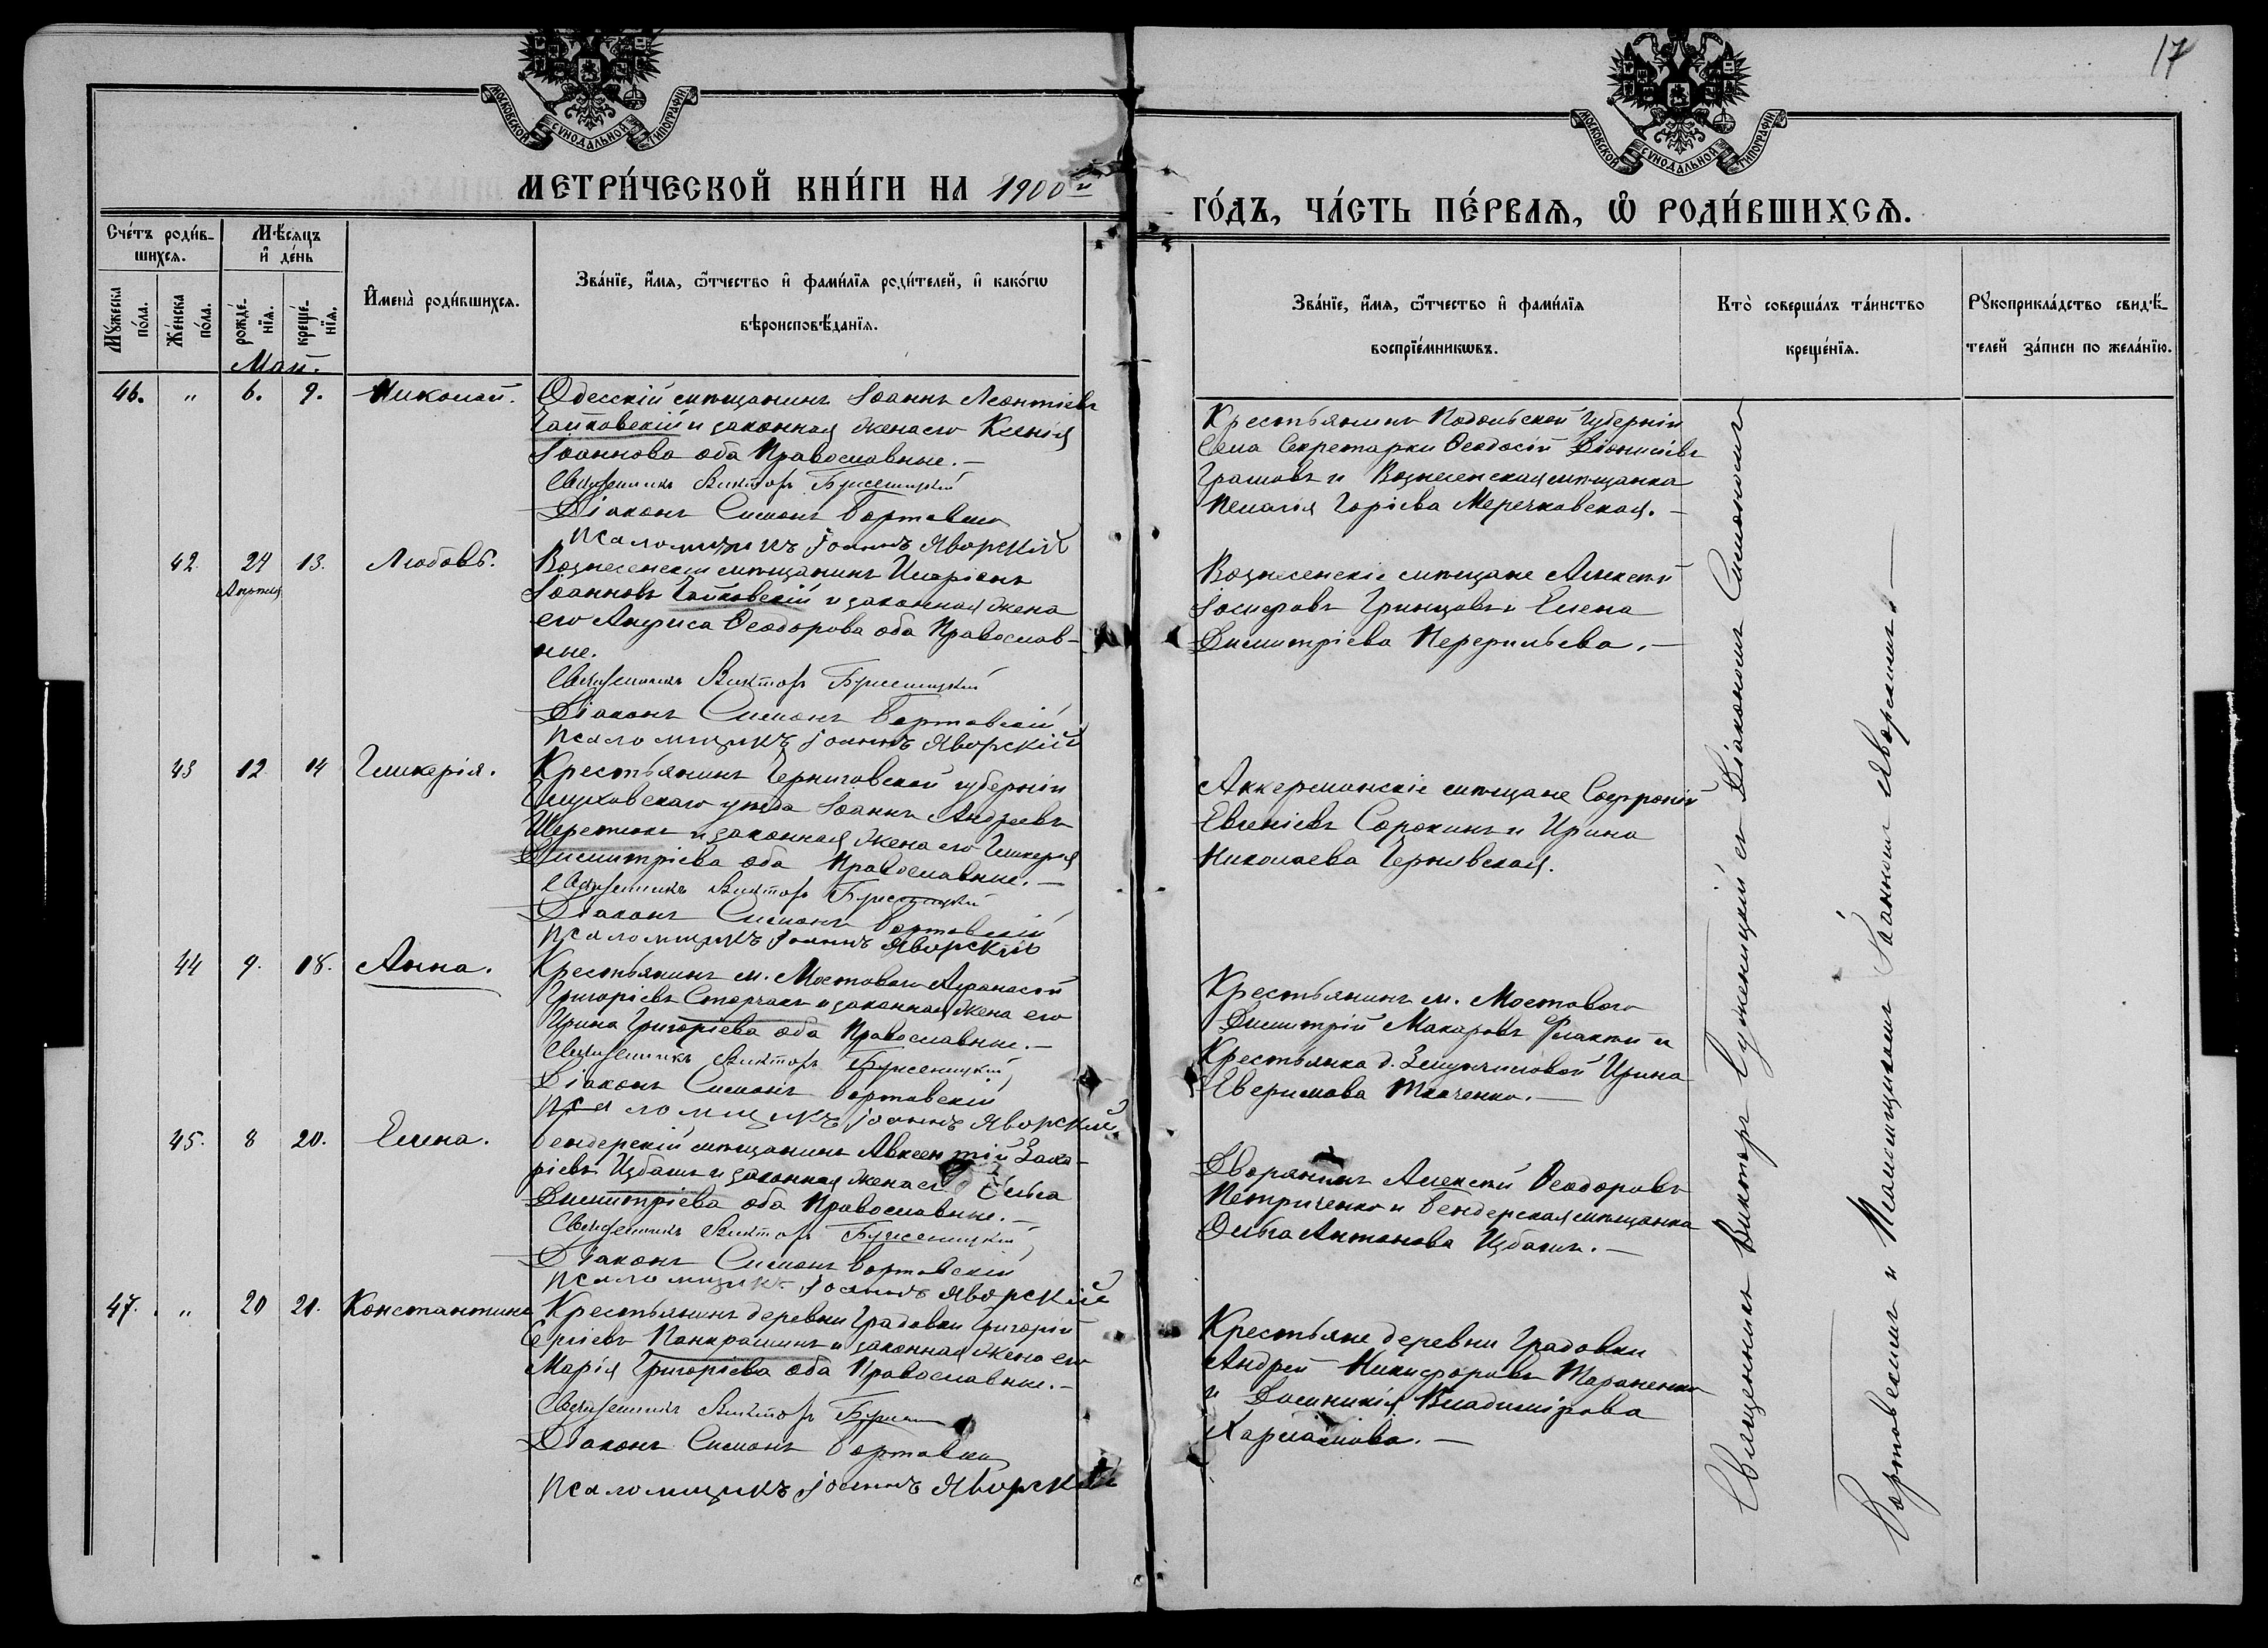 17
МОСКОВСКОЙ СѴНОДАЛЬНОЙ ТИПОГРАФІИ
МОСКОВСКОЙ СѴНОДАЛЬНОЙ ТИПОГРАФІИ
МЕТРИ́ЧЕСКОЙ КНИ́ГИ НА 1900й
ГО́ДЪ, ЧА́СТЬ ПЕ́РВАѦ, Ѡ҆ РОДИ́ВШИХСѦ.
Сче́тъ роди́в-
шихсѧ.
Мѣ́сѧцъ
и҆ де́нь
Мꙋ́жеска по́ла.
Же́нска по́ла.
рожде́-нїѧ.
креще́-нїѧ.
И҆мена̀ роди́вшихсѧ.
Зва́нїе, и҆́мѧ, ѻ҆́тчество и҆ фами́лїѧ роди́телей, и҆ како́гѡ
вѣроисповѣ́данїѧ.
Зва́нїе, и҆́мѧ, ѻ҆́тчество и҆ фами́лїѧ
воспрїе́мникѡвъ.
Кто̀ соверша́лъ та́инство
креще́нїѧ.
Рꙋкоприкла́дство свидѣ́-
телей за́писи по жела́нїю.
Май.
46. " 6. 9. Николай.
Одесскій мѣщанинъ Іоаннъ Леонтіевъ
Чайковскій и законная жена его Ксенія
Іоаннова оба Православные.—
Священникъ Викторъ Буженицкій
Діаконъ Симонъ Бортовскій
псаломщикъ Іоаннъ Яворскій
Крестьянинъ Подольской губерніи
Села Секретарки Ѳеодосій Діонисіевъ
и Вознесенская мѣщанка
Пелагія Меречковская.—
42. 24 Апрѣля 13. Любовь.
Вознесенскій мѣщанинъ Иларіонъ
Іоанновъ Чайковскій и законная жена
его Анфиса Ѳеодорова оба Православ-
ные.
Священникъ Викторъ Буженицкій
Діаконъ Симонъ Бортовскій
псаломщикъ Іоаннъ Яворскій
Вознесенскіе мѣщане Алексѣй
Іосифовъ Гринцовъ и Елена
Димитріева
43 12 14 Гликерія.
Крестьянинъ Черниговской губерніи
Глуховскаго уѣзда Іоаннъ Андреевъ
Шереметъ и законная жена его Гликерія
Димитріева оба Православные.—
Священникъ Викторъ Буженицкій
Діаконъ Симонъ Бортовскій
псаломщикъ Іоаннъ Яворскій
Аккерманскіе мѣщане Софроній
Евгеніевъ Сорокинъ и Ирина
Николаева Чернявская.
44 9. 18. Анна.
Крестьянинъ м. Мостового Афанасій
Григоріевъ Сторчакъ и законная жена его
Ирина Григоріева оба Православные.—
Священникъ Викторъ Буженицкій
Діаконъ Симонъ Бортовскій
псаломщикъ Іоаннъ Яворскій
Крестьянинъ м. Мостового
Димитрій Макаровъ и
Крестьянка д. Ирина
Ткаченко.—
45. 8 20. Елена.
Бендерскій мѣщанинъ Авксентій Заха-
ріевъ Избашъ и законная жена его Ольга
Димитріева оба Православные.—
Священникъ Викторъ Буженицкій
Діаконъ Симонъ Бортовскій
псаломщикъ Іоаннъ Яворскій
Дворянинъ Алексѣй Ѳеодоровъ
Петриченко и Бендерская мѣщанка
Ольга Антонова Избашъ.—
47. " 20 21. Константинъ
Крестьянинъ деревни Градовки Григорій
Сергіевъ Панкрашинъ и законная жена его
Марія Григоріева оба Православные.—
Священникъ Викторъ
Діаконъ Симонъ Бортовскій
псаломщикъ Іоаннъ Яворскій
Крестьяне деревни Градовки
Андрей Никифоровъ Тараненко
и Домникія Владимірова
Священникъ Викторъ Буженицкій съ Діакономъ Симономъ
Бортовскимъ и Псаломщикомъ Іоанномъ Яворскимъ.—